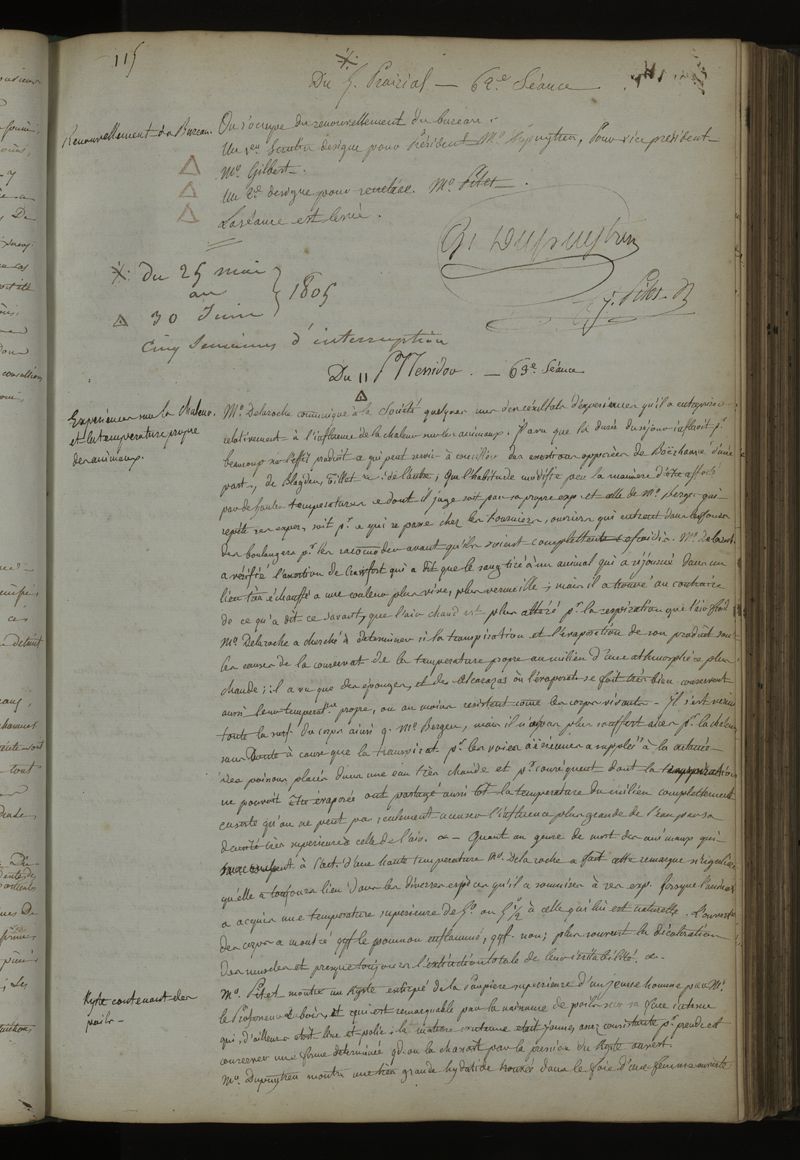 115
Du 5. Prairial — 62.e Séance
Renouvellement du Bureau.
On s'occupe du renouvellement du bureau.
Un 1er Scrutin désigne pour Président Mr. Dupuytren, Pour vice président
Mr. Gilbert.
Un 2.d désigne pour secrétaire. Mr. Pitet.
La séance est levée.
Dupuytren
Pitet
Du 25 mai
au
30 Juin
1805
Cinq Semaines d'interruption
Du 11 Messidor. — 63.e Séance
Expériences sur la chaleur
et la température propre
des animaux.
Mr. Delaroche communique à la Société quelques uns des résultats d'expériences qu'il a entreprises
relativement à l'influence de la chaleur sur les animaux. Il a vu que la durée du séjour influoit pr.
beaucoup sur l'effet produit ce qui peut servir à concilier des assertions opposées de Boërhaave d'une
part, de Blagden, Tillet &c. de l'autre; que l'habitude modifie peu la manière d'être affecté
par de hautes températures ce dont il juge soit par sa propre exp. et celle de Mr. Berger qui
répète ses expér, soit pr. ce qui se passe chez les ouvriers qui entrent dans les fours
des boulangers pr. les racomoder avant qu'ils soient complettent refroidis. Mr. Delaroch.
a vérifié l'assertion de Crawfort qui a dit que le sang tiré à un animal qui a séjourné dans un
lieu très échauffé a une couleur plus vive, plus vermeille; mais il a trouvé au contraire
de ce qu'a dit ce savant, que l'air chaud est plus altéré pr. la respiration que l'air froid
Mr. Delaroche a cherché à déterminer si la transpiration et l'évaporation de son produit sont
les causes de la conservat. de la température propre au milieu d'une athmosphère plus
chaude; il a vu que des éponges, et des alcarazas où l'évaporat. se fait très bien conservent
aussi leur températ.re propre, ou au moins resistent come les corps vivants. — Il s'est verni
toute la surf. du corps ainsi q. Mr. Berger, mais il n'a pas plus souffert alors pr. la chaleur
sans doute à cause que la transpirat. pr. les voies aériennes a supplée à la cutanée
des poissons placés dans une eau très chaude et pr. conséquent dont la transpiration
ne pouvoit être évaporée ont partagé aussi tôt la température du milieu complettement
ensorte qu'on ne peut pas seulement accuser l'influence plus grande de l'eau par sa
densité très supérieure à celle de l'air. &. — Quant au genre de mort des animaux qui
succombent à l'act. d'une haute température Mr. De la roche a fait cette remarque singulière
qu'elle a toujours lieu dans les diverses espèces qu'il a soumises à ses exp. lorsque l'animal
a acquis une température supérieure de 5° ou 5° 1/2 à celle qui lui est naturelle. L'ouverture
des corps a montré qqf. le poumon enflammé, qqf. non; plus souvent la décoloration
des muscles et presque toujours l'extinction totale de leur irritabilité. &.
Kyste contenant des
poils —
Mr. Pitet montre un Kyste extirpé de la Paupière supérieure d'un jeune homme par Mr.
le Professeur Boïer, et qui est remarquable par la naissance de poils sur sa face interne
qui, d'ailleurs étoit lisse et polie; la matière contenue étoit jaune, assez consistante pr. prendre et
conserver une forme déterminée qd. on la chassoit par la pression du Kyste ouvert.
Mr. Dupuytren montre une très grande hydatide trouvée dans le foie d'une femme ouverte